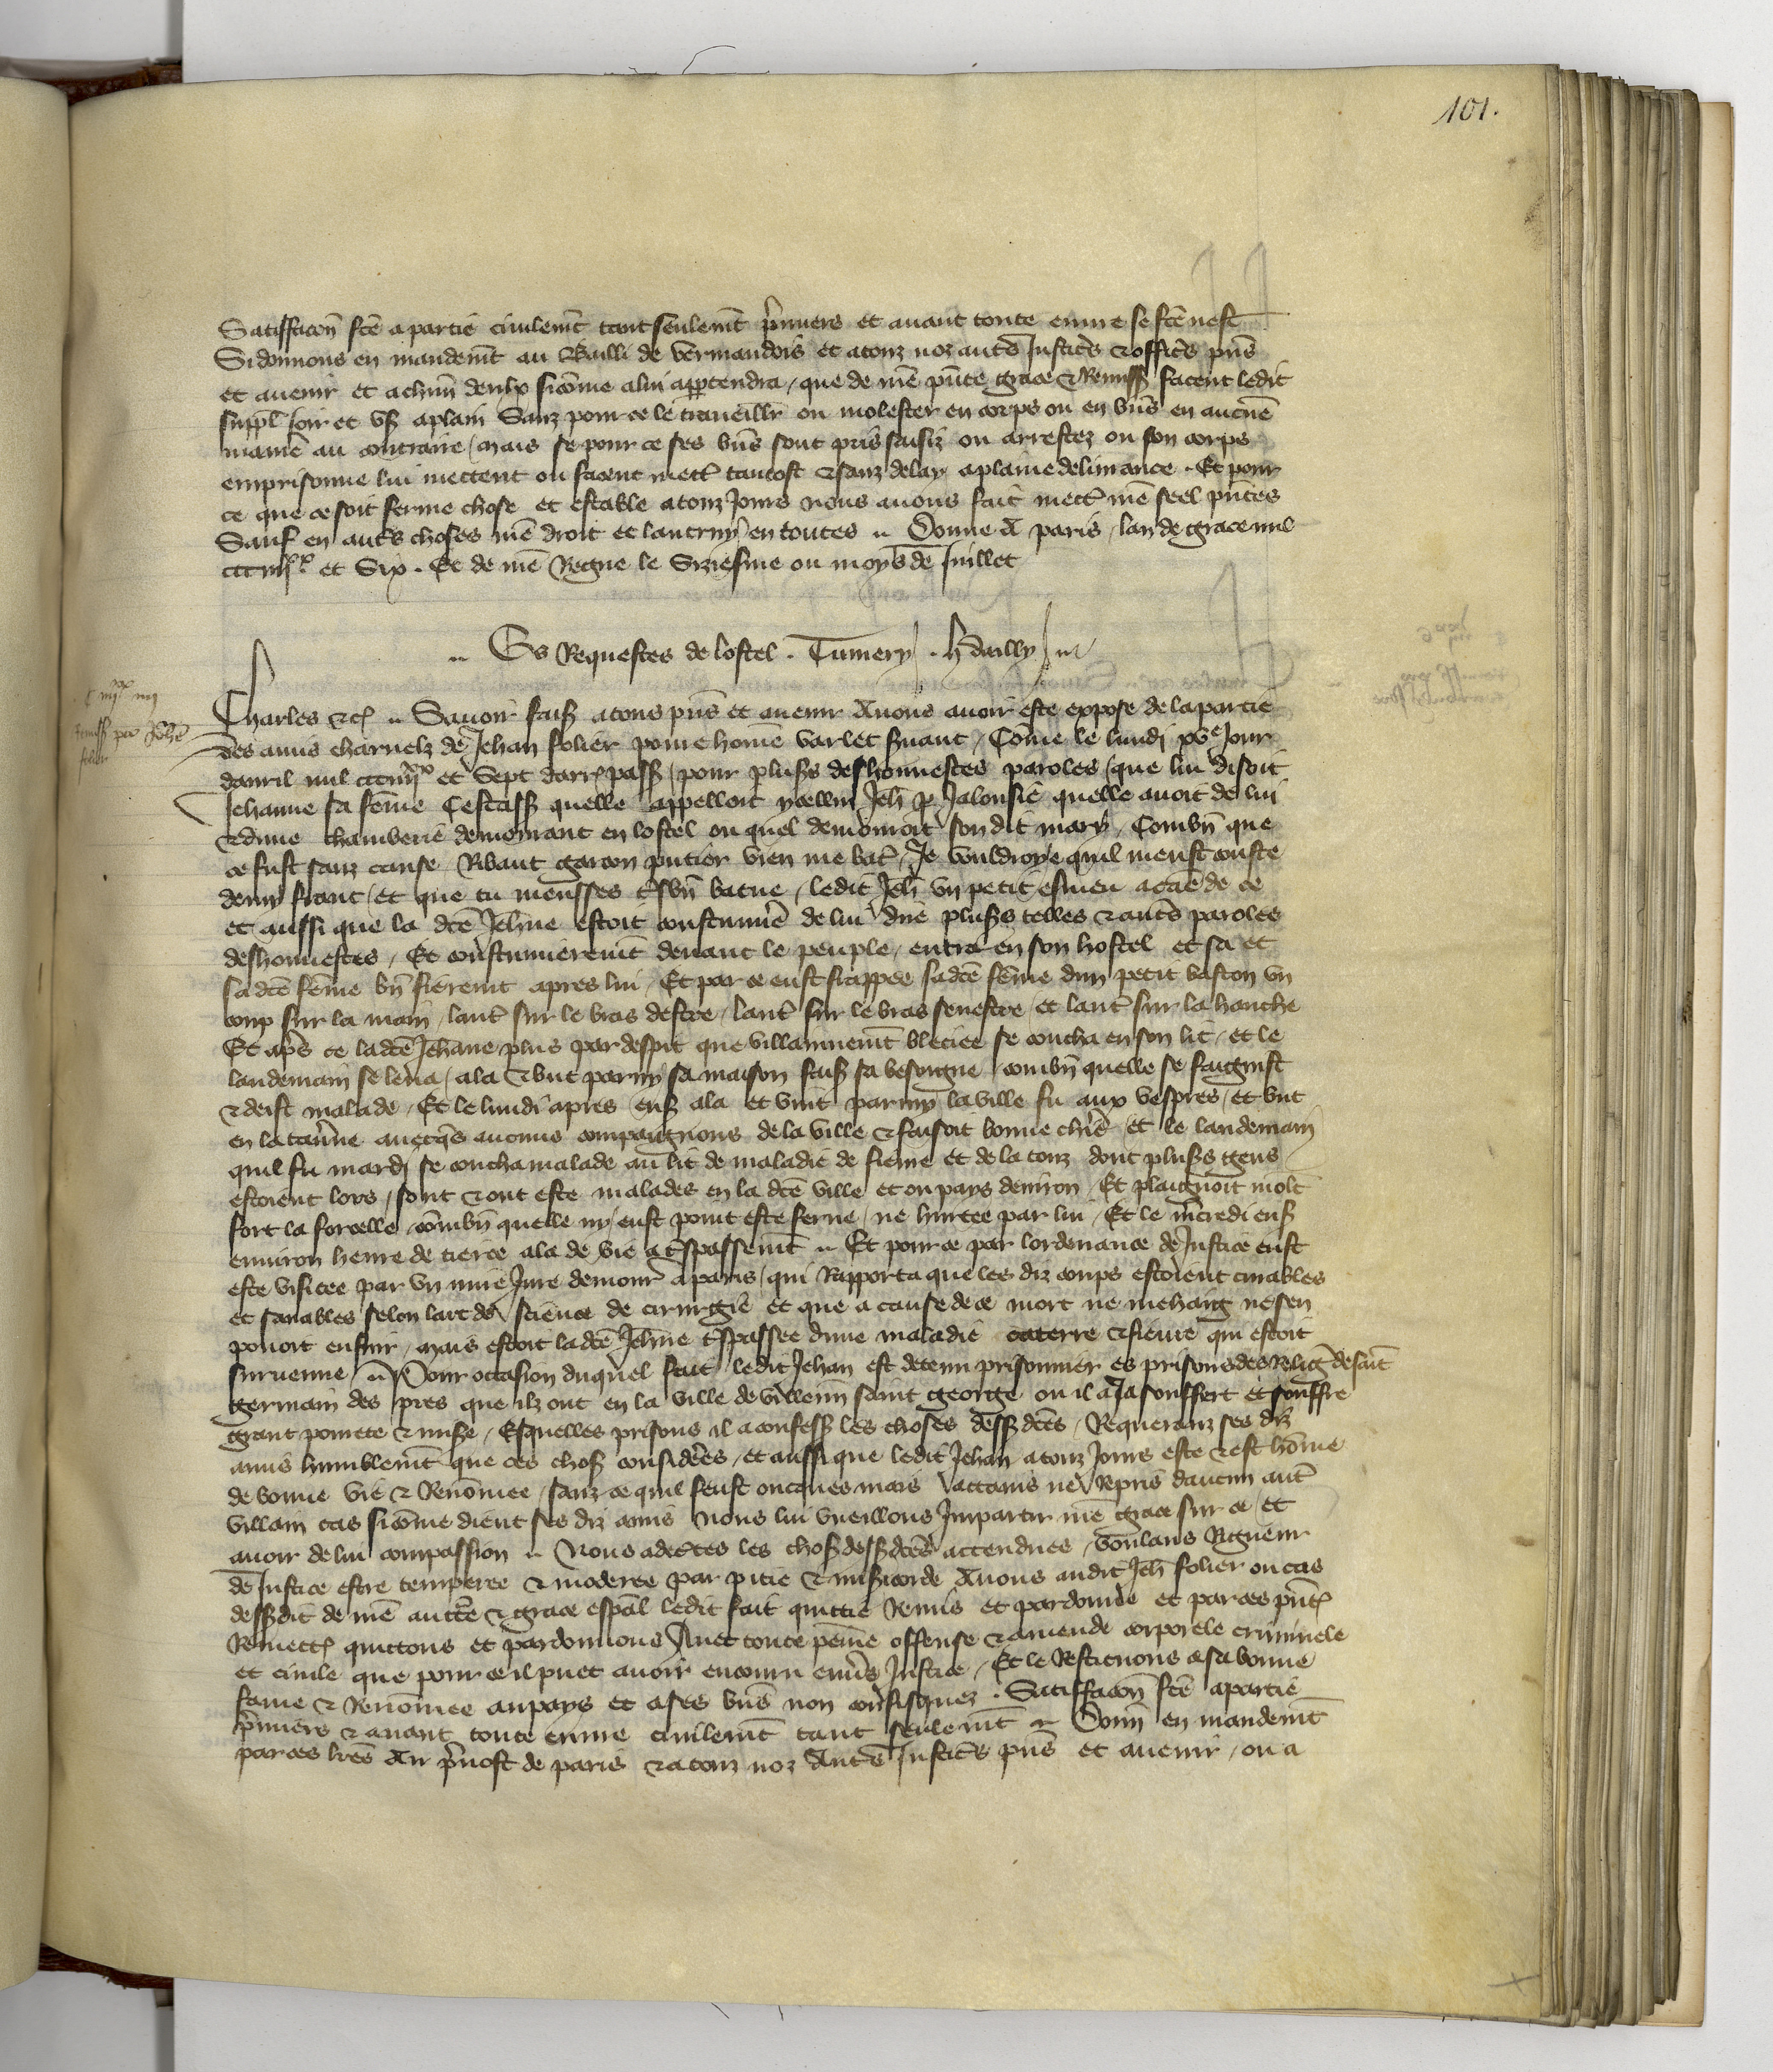 101.
Satisffacōn fcē a partie civilemt̄ tant seulemt̄ p̄miers et avant toute euvre se fcē nest
Si donnons en mandemt̄ au Bailli de Vermandois et a touz noz autrēs Justic̄s & offic̄s pn̄s
et avenir et a chūn deulx sicōme a lui app̄tendra / que de nr̄e pn̄te grace & Remiss facent ledit
suppl̄ joir et us̄ a plain Sanz pour ce le travaill̄r ou molester en corps ou en biēs en aucūe
maniē au contraire / mais se pour ce ses biēs sont pris saisiz ou arrestez ou son corps
emprisonne lui mettent ou facent mett̄ tantost & sanz delay a plaine delivrance . Et pour
ce que ce soit ferme chose et estable a touz Jours nous avons fait mett̄ nr̄e seel pn̄tes
Sauf en autrēs choses nr̄e droit et lautruy en toutes .. Donne A paris / lan de grace mil
ccciiijxx et Six . Et de nr̄e Regne le Siziesme ou moys de Juillet
.. Es Requestes de lostel . Tumery . H dailly
C iiijxx iiij
Remiss pour Jehan
folier
Charles &c .. Savoir fais̄ a tous pn̄s et avenir A nous avoir este expose de la partie
des amis charnelz de Jehan folier povre homē varlet s̄vant / Cōme le lundi xve Jour
davril mil ccciiijxx et Sept darr̄ pass̄ / pour plus̄s deshonnestes paroles / que lui disoit
Jehanne sa fēme Cestass̄ quelle appelloit ycellui Jeh̄ p Jalousie quelle avoit de lui
& dune chamberiē demourant en lostel ou quel demouroit son dit mary / Combn̄ que
ce fust sanz cause Ribaut garcon putier vien me bat̄ / Je vouldroye quil meust couste
demy franc / et que tu meusses t̄sbn̄ batue / ledit Jeh̄ un petit esmeu a cāe de ce
et aussi que la dcē Jeh̄ne estoit coustumiē de lui dire plus̄s telles & autrēs paroles
deshonnestes / Et coustumieremt̄ devant le peuple / entra en son hostel et sa et
sa dcē fēme bn̄ fieremt̄ apres lui / Et par ce eust frappee sa dcē fēme dun petit baston un
coup sur la main / laut̄ sur le bras destre / laut̄ sur le bras senestre / et laut̄ sur la hanche
Et ap̄s ce la dcē Jehanne plus par despit que villainnemt̄ bleciee se coucha en son lit / et le
landemain se leva / ala & but parmy sa maison fais̄ sa besongne / combn̄ quelle se faignist
& deist malade / Et le lundi apres ens̄ ala et vint parmy la ville fu aux vespres / et but
en la tav̄ne avecqs̄ aucuns compaignons de la ville & faisoit bonne chr̄e / et le landemain
quil fu mardi se coucha malade au lit de maladie de fievre et de la touz dont plus̄s gens
estoient lors / sont & ont este malades en la dcē ville et ou pays denviron / Et plaignoit molt
fort la forcelle / cōmbn̄ quelle ny eust point este ferue / ne hurtee par lui / Et le m̄credi ens̄
environ heure de tierce ala de vie a t̄spassemt̄ .. Et pour ce par lordenance de Justice eust
este visitee par un mirē Jure demour̄ a paris / qui Rapporta que les diz coups estoient curables
et sanables selon lart de science de cirurgie et que a cause de ce mort ne mehaing ne sen
povoit ensuir / mais estoit la dcē Jeh̄ne t̄spassee dune maladie caterre & fievre qui estoit
survenue / .. Pour occasion duquel fait / ledit Jehan est detenu prisonnier es prisons des Reliḡ de saīt
germain des pres que ilz ont en la ville de villenn̄ saint george ou il a Ja souffert et souffre
grant povrete & mis̄e / Esquelles prisons il a confess̄ les choses dess̄ dcēs / Requeranz ses diz
amis humblemt̄ que ces chos̄ consid̄ees / et aussi que ledit Jehan a touz Jours este & est hōme
de bonne vie & Renōmee / sanz ce quil feust oncques mais attains ne Repris daucun aut̄
villain cas sicōme dient ses diz amis nous lui vueillons Impartir nr̄e grace sur ce / et
avoir de lui compassion .. Nous adec̄tes les chos̄ dess̄ dcēs attendues / voulans Rigueur
de Justice estre temperee & moderee par pitie & mis̄icorde A nous audit Jeh̄ folier ou cas
dess̄ dit de nr̄e auctē & grace esp̄al ledit fait quittie Remis et pardonne et par ces pn̄t̄
Remett̄ quittons et pardonnons Avec toute peine offense & amende corporele criminele
et civile que pour ce il puet avoir encouru env̄s Justice / Et le Restituons a sa bonne
fame & Renōmee au pays et a ses biēs non confisquez . Satisfacōn fcē a partie
p̄miers & avant toute euvre civilemt̄ tant seulemt̄ .. Donn̄ en mandemt̄
par ces lr̄es Au p̄vost de paris & a touz noz Autrēs Justic̄s pn̄s et avenir / ou a